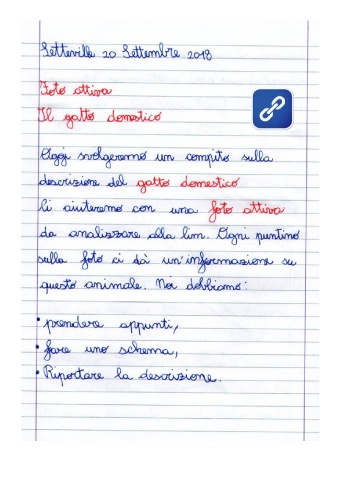 Setteville 20 Settembre 2018
Foto attiva
Il gatto domestico
Oggi svolgeremo un compito sulla
descrizione del gatto domestico
Ci aiuteremo con una foto attiva
da analizzare alla lim. Ogni puntino
sulla foto ci dà un'informazione su
questo animale. Noi dobbiamo:
• prendere appunti,
• fare uno schema,
• Riportare la descrizione.